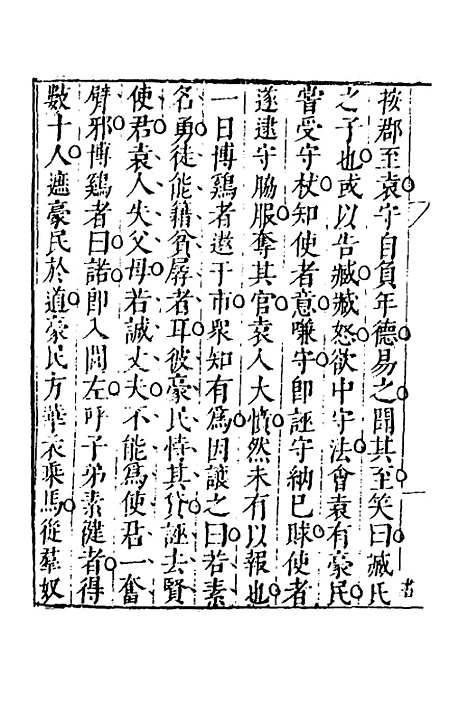 按郡至袁守自負年德易之聞其至笑曰臧氏
之子也或以告臧臧怒欲中守法會袁有豪民
嘗受守杖知使者意嗛守即誣守納已賕使者
遂逮守脇服奪其官袁人大憤然未有以報也
一日博鷄者遨于市衆知有為因讓之曰若素
名勇徒能藉貧孱者耳彼豪民恃其貲誣去賢
使君袁人失父母若誠丈夫不能為使君一奮
臂邪博鷄者曰諾即入閭左呼子弟素健者得
數十人遮豪民於道豪民方華衣乘馬從羣奴